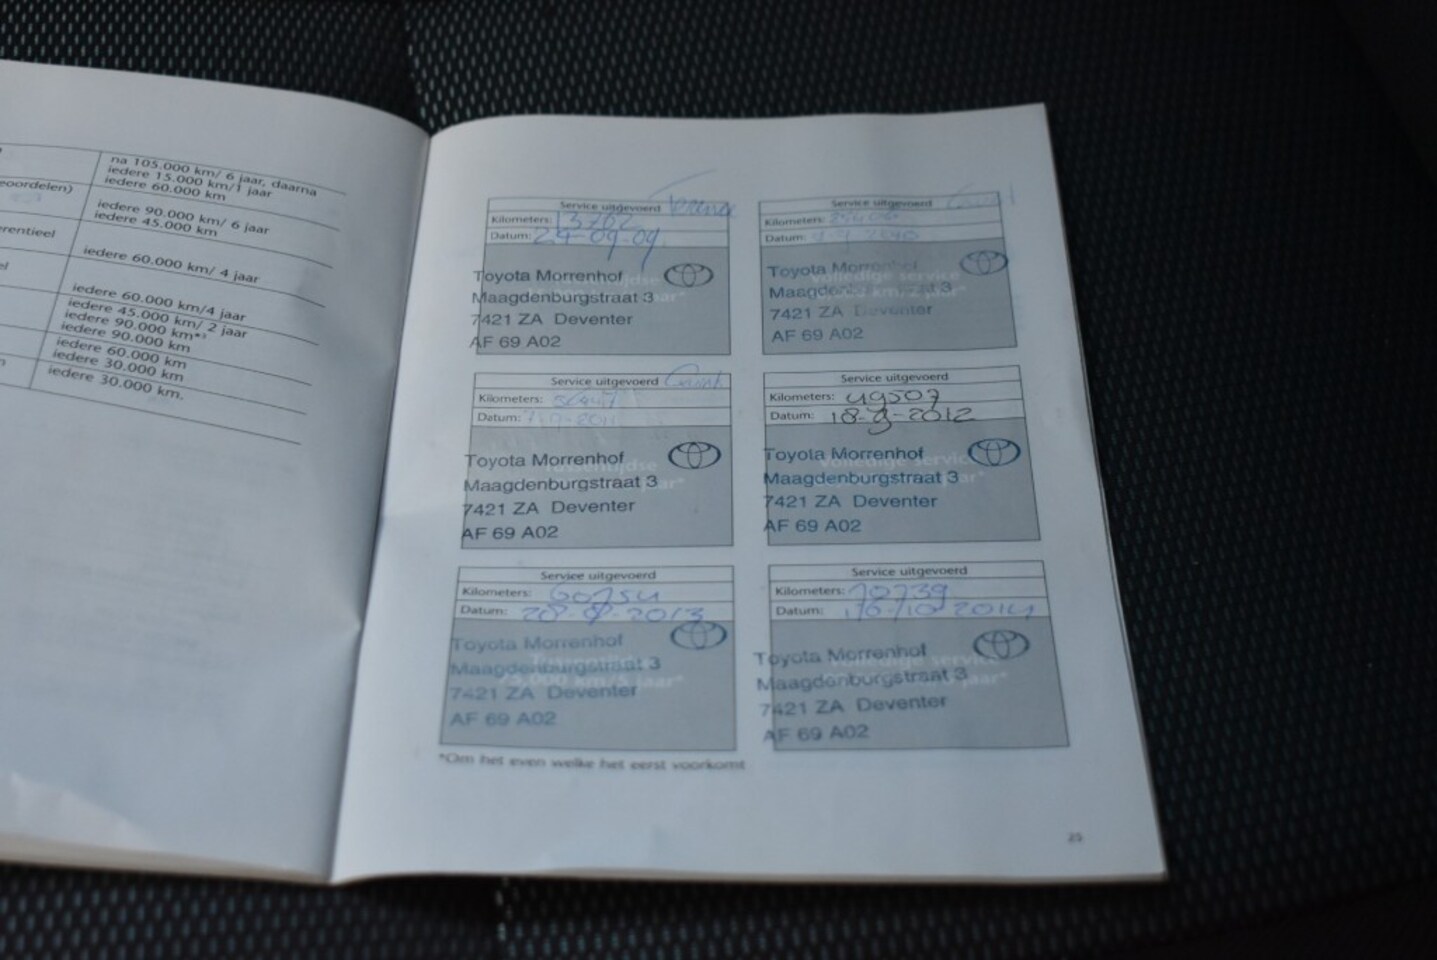 na 105.000 km/ 6 jaar, daarna
iedere 15.000 km/1 jaar
eoordelen)
iedere 60.000 km
iedere 90.000 km/ 6 jaar
rentieel
iedere 45.000 km
el
iedere 60.000 km/ 4 jaar
iedere 60.000 km/4 jaar
iedere 45.000 km/ 2 jaar
iedere 90.000 km*³
iedere 90.000 km
iedere 60.000 km
iedere 30.000 km
iedere 30.000 km.
Service uitgevoerd
Kilometers: 13702
Datum: 24-09-09
Toyota Morrenhof
Maagdenburgstraat 3
7421 ZA Deventer
AF 69 A02
Service uitgevoerd
Kilometers:
Datum:
Toyota Morrenhof
3
7421 ZA Deventer
AF 69 A02
Service uitgevoerd
Kilometers:
Datum: 2011
Toyota Morrenhof
Maagdenburgstraat 3
7421 ZA Deventer
AF 69 A02
Service uitgevoerd
Kilometers: 49507
Datum: 2012
Toyota Morrenhof
Maagdenburgstraat 3
7421 ZA Deventer
AF 69 A02
Service uitgevoerd
Kilometers: 60754
Datum: 28-8-2013
Toyota Morrenhof
Maagdenburgstraat 3
7421 ZA Deventer
AF 69 A02
Service uitgevoerd
Kilometers: 70739
Datum: 16-10-2014
Toyota Morrenhof
Maagdenburgstraat 3
7421 ZA Deventer
AF 69 A02
*Om het even welke het eerst voorkomt
25